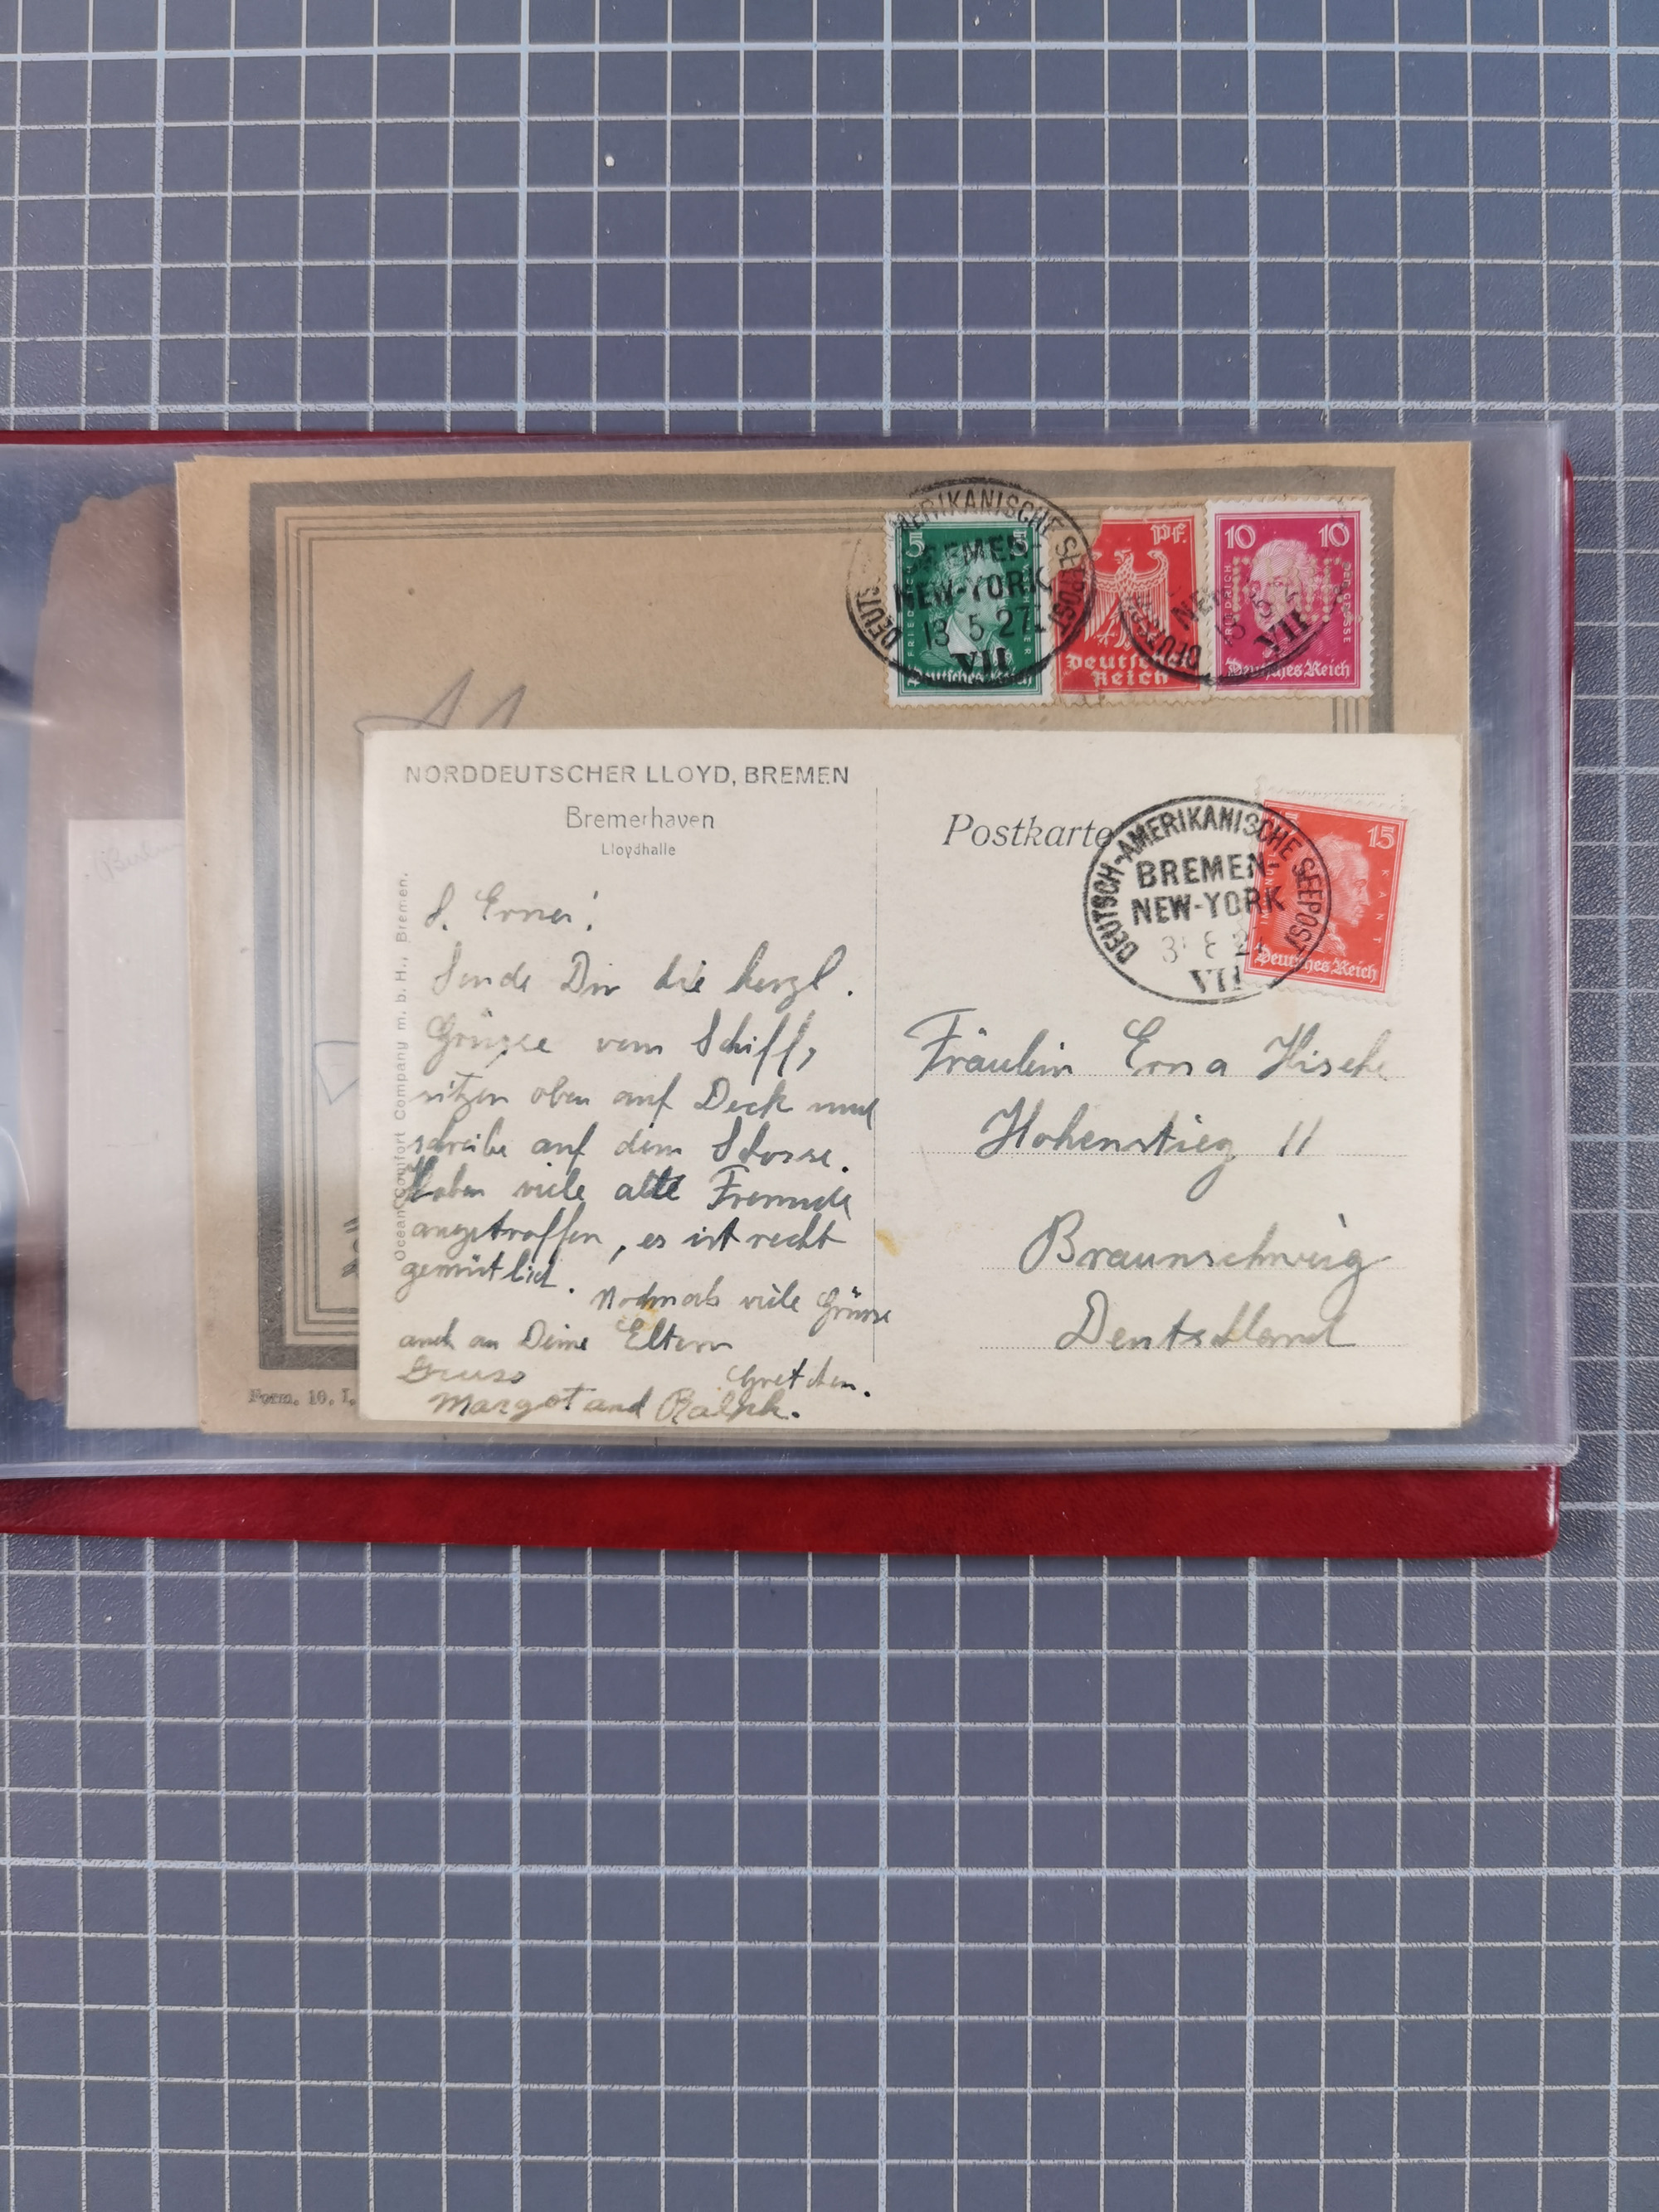 AMERIKANISCHE SEEPOST
BREMEN-
NEW-YORK
13 5 27
VII
5 5
FRIEDRICH
Deutsches Reich
Pf.
Deutsches
Reich
10 10
FRIEDRICH DER GROSSE
Deutsches Reich
NORDDEUTSCHER LLOYD, BREMEN
Bremerhaven
Lloydhalle
Ocean Comfort Company m. b. H., Bremen.
L. Erna!
Sende Dir die herzl.
Grüsse vom Schiff,
sitzen oben auf Deck und
schreibe auf dem Schosse.
Haben viele alte Freunde
angetroffen, es ist recht
gemütlich. Nochmals viele Grüsse
auch an Deine Eltern
Gretchen.
Gruss
Margot and Ralph.
Postkarte
DEUTSCH-AMERIKANISCHE SEEPOST
BREMEN-
NEW-YORK
VII
15
KANT
Deutsches Reich
Fräulein Erna
Hohenstieg 11
Braunschweig
Deutschland
Form. 10. I.